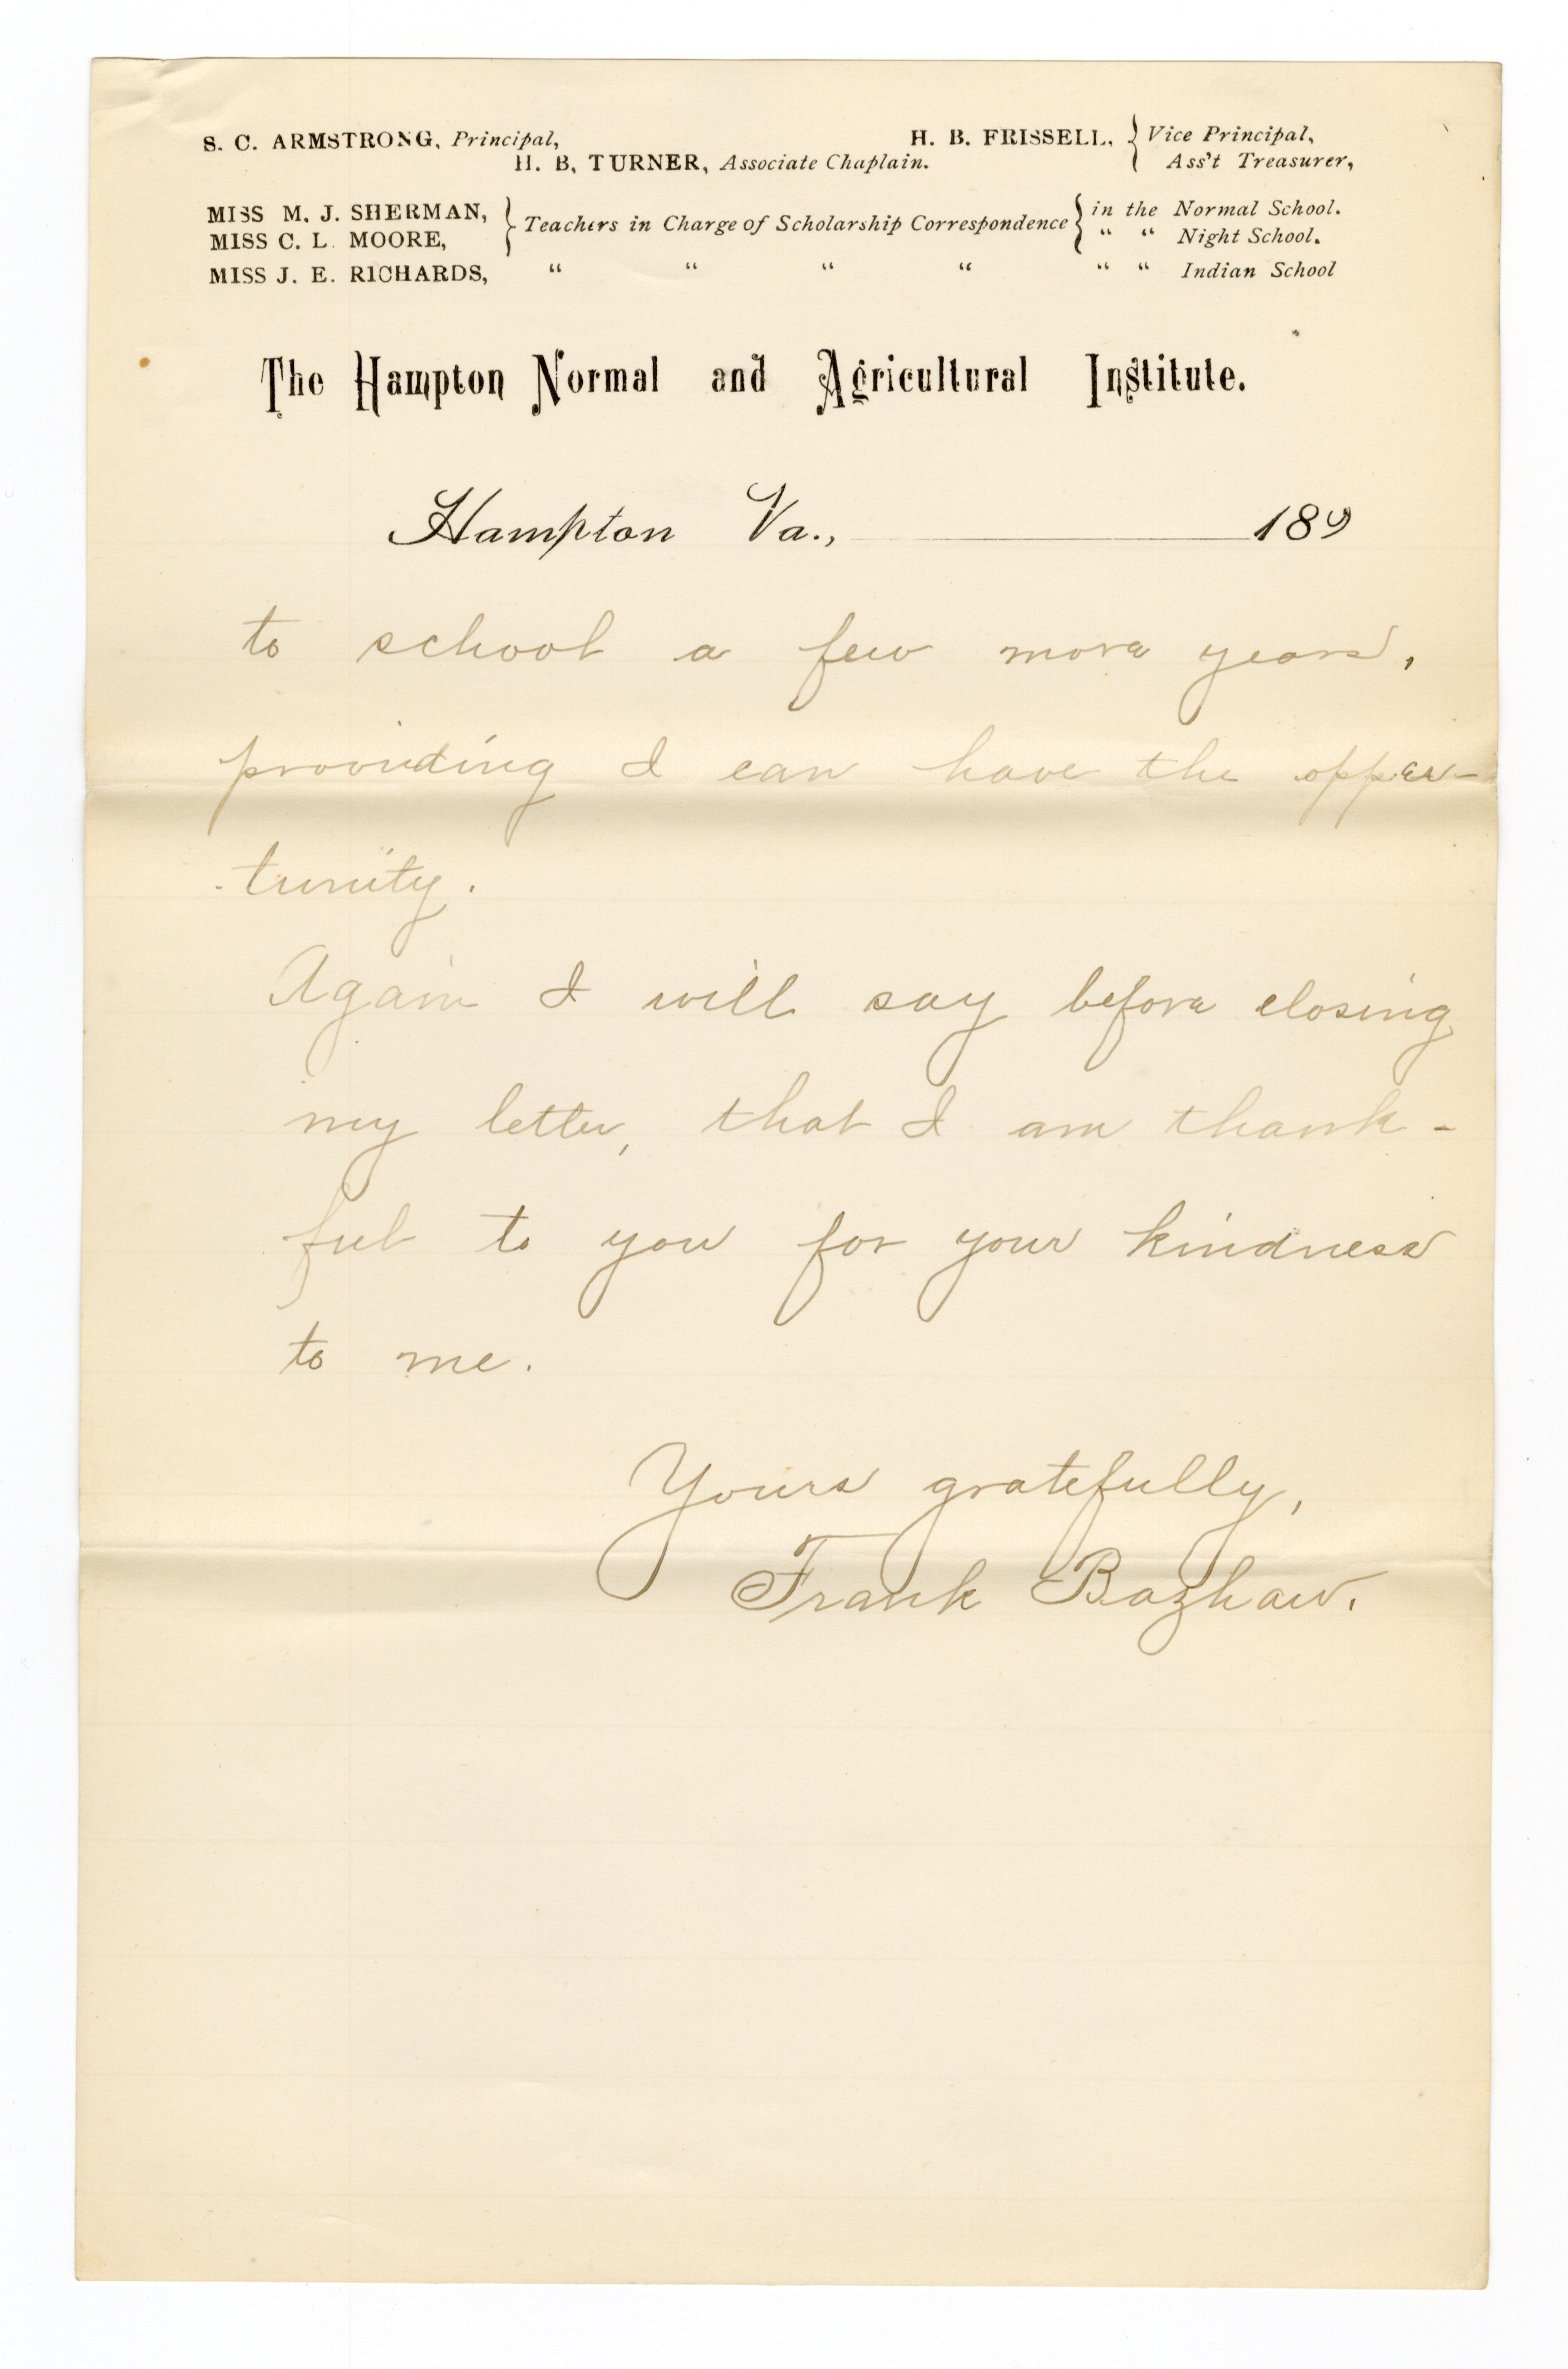 S. C. ARMSTRONG, Principal, H. B. FRISSELL, { Vice Principal,
H. B. TURNER, Associate Chaplain. Ass't Treasurer,
MISS M. J. SHERMAN, } Teachers in Charge of Scholarship Correspondence { in the Normal School.
MISS C. L. MOORE, “ “ Night School.
MISS J. E. RICHARDS, “ “ “ “ “ “ Indian School
The Hampton Normal and Agricultural Institute.
Hampton Va., 189
to school a few more years,
providing I can have the oppor-
-tunity.
Again I will say before closing
my letter, that I am thank-
ful to you for your kindness
to me.
Yours gratefully,
Frank Bazhaw.